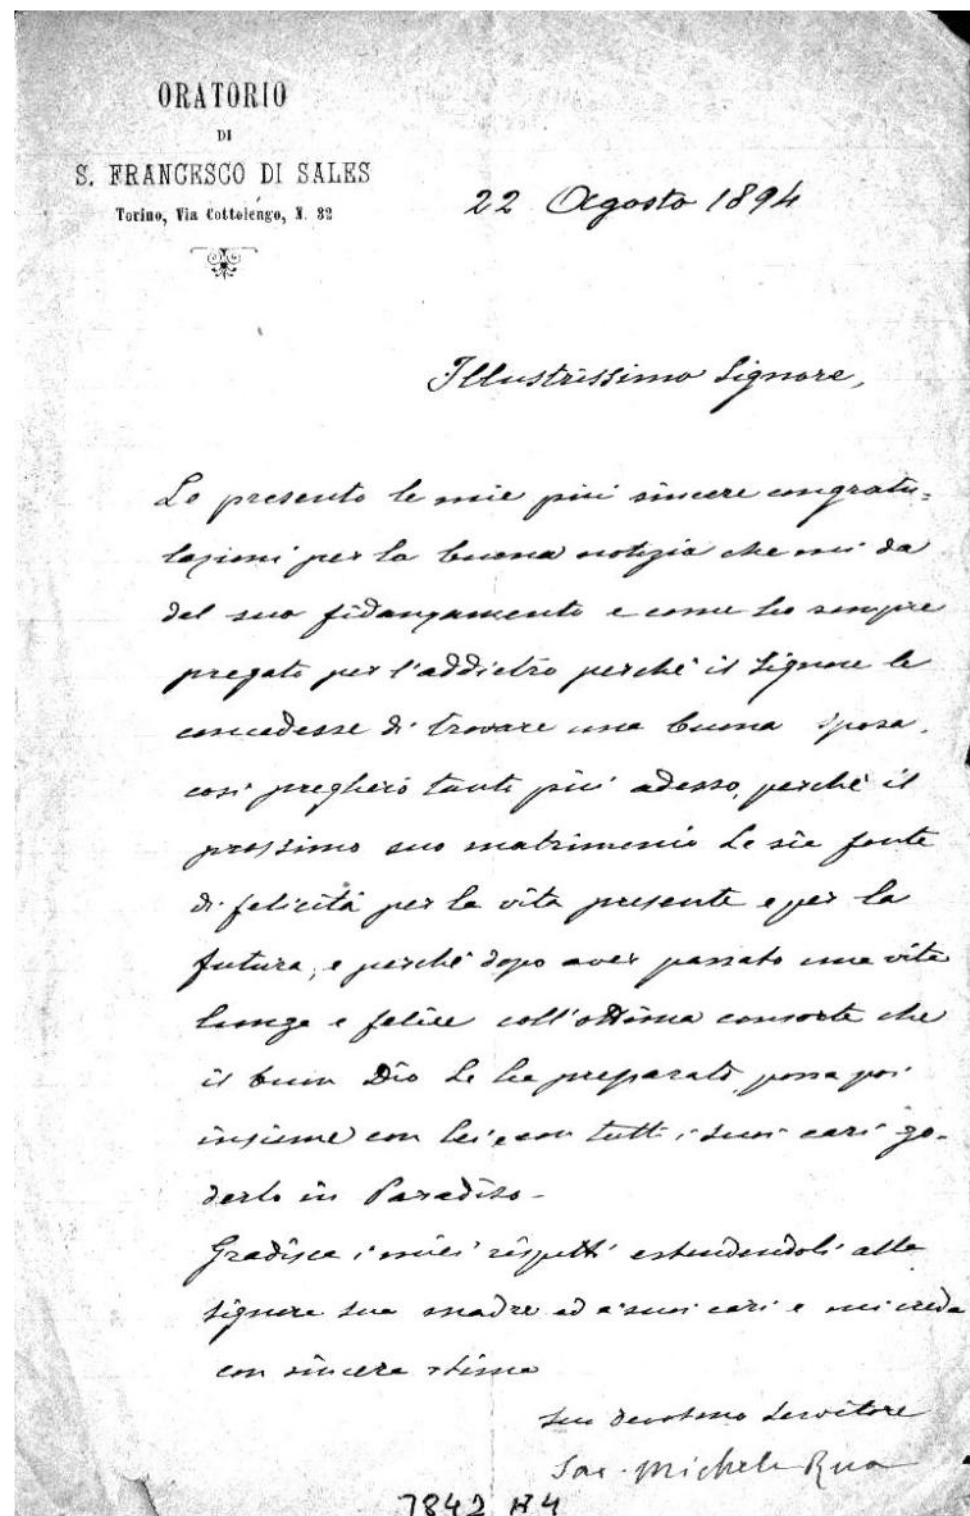 ORATORIO
DI
S. FRANCESCO DI SALES
Torino, Via Cottolengo, N. 32
22 Agosto 1894
Illustrissimo Signore,
Le presento le mie più sincere congratu=
lazioni per la buona notizia che mi dà
del suo fidanzamento e come ho sempre
pregato per l'addietro perchè il Signore le
concedesse di trovare una buona sposa,
così pregherò tanto più adesso, perchè il
prossimo suo matrimonio Le sia fonte
di felicità per la vita presente e per la
futura, e perchè dopo aver passato una vita
lunga e felice coll'ottima consorte che
il buon Dio Le ha preparato, possa poi
insieme con lei e con tutti i suoi cari go-
derlo in Paradiso-
Gradisca i miei rispetti estendendoli alla
signora sua madre ed a' suoi cari e mi creda
con sincera stima
Suo devotmo Servitore
Sac. Michele Rua
7842 H4